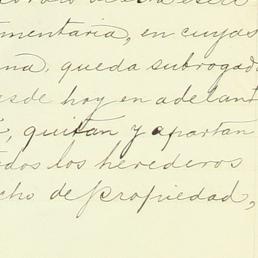 mentaria, en cuyas
na, queda subrogad
esde hoy en adelant
, quitan y apartan
odos los herederos
cho de propiedad,